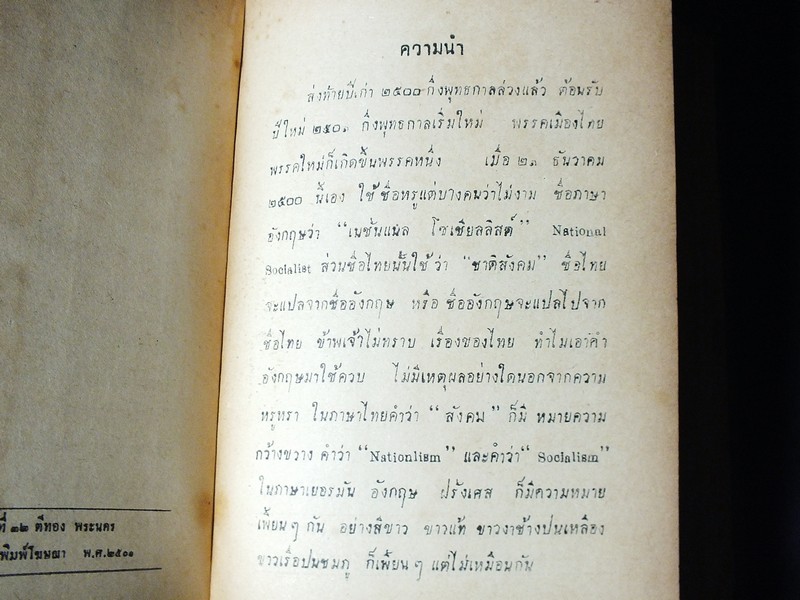 ความนำ
ส่งท้ายปีเก่า ๒๕๐๐ กึ่งพุทธกาลล่วงแล้ว ต้อนรับ
ปีใหม่ ๒๕๐๑ กึ่งพุทธกาลเริ่มใหม่ พรรคเมืองไทย
พรรคใหม่ก็เกิดขึ้นพรรคหนึ่ง เมื่อ ๒๑ ธันวาคม
๒๕๐๐ นี้เอง ใช้ชื่อหรูแต่บางคนว่าไม่งาม ชื่อภาษา
อังกฤษว่า "เนชั่นแนล โซเชียลลิสต์" National
Socialist ส่วนชื่อไทยนั้นใช้ว่า "ชาติสังคม" ชื่อไทย
จะแปลจากชื่ออังกฤษ หรือ ชื่ออังกฤษจะแปลไปจาก
ชื่อไทย ข้าพเจ้าไม่ทราบ เรื่องของไทย ทำไมเอาคำ
อังกฤษมาใช้ควบ ไม่มีเหตุผลอย่างใดนอกจากความ
หรูหรา ในภาษาไทยคำว่า "สังคม" ก็มี หมายความ
กว้างขวาง คำว่า "Nationlism" และคำว่า "Socialism"
ในภาษาเยอรมัน อังกฤษ ฝรั่งเศส ก็มีความหมาย
เพี้ยนๆ กัน อย่างสีขาว ขาวแท้ ขาวงาช้างปนเหลือง
ขาวเรื่อปนชมภู ก็เพี้ยนๆ แต่ไม่เหมือนกัน
ที่ ๑๒ ตีทอง พระนคร
พิมพ์โฆษณา พ.ศ.๒๕๐๑